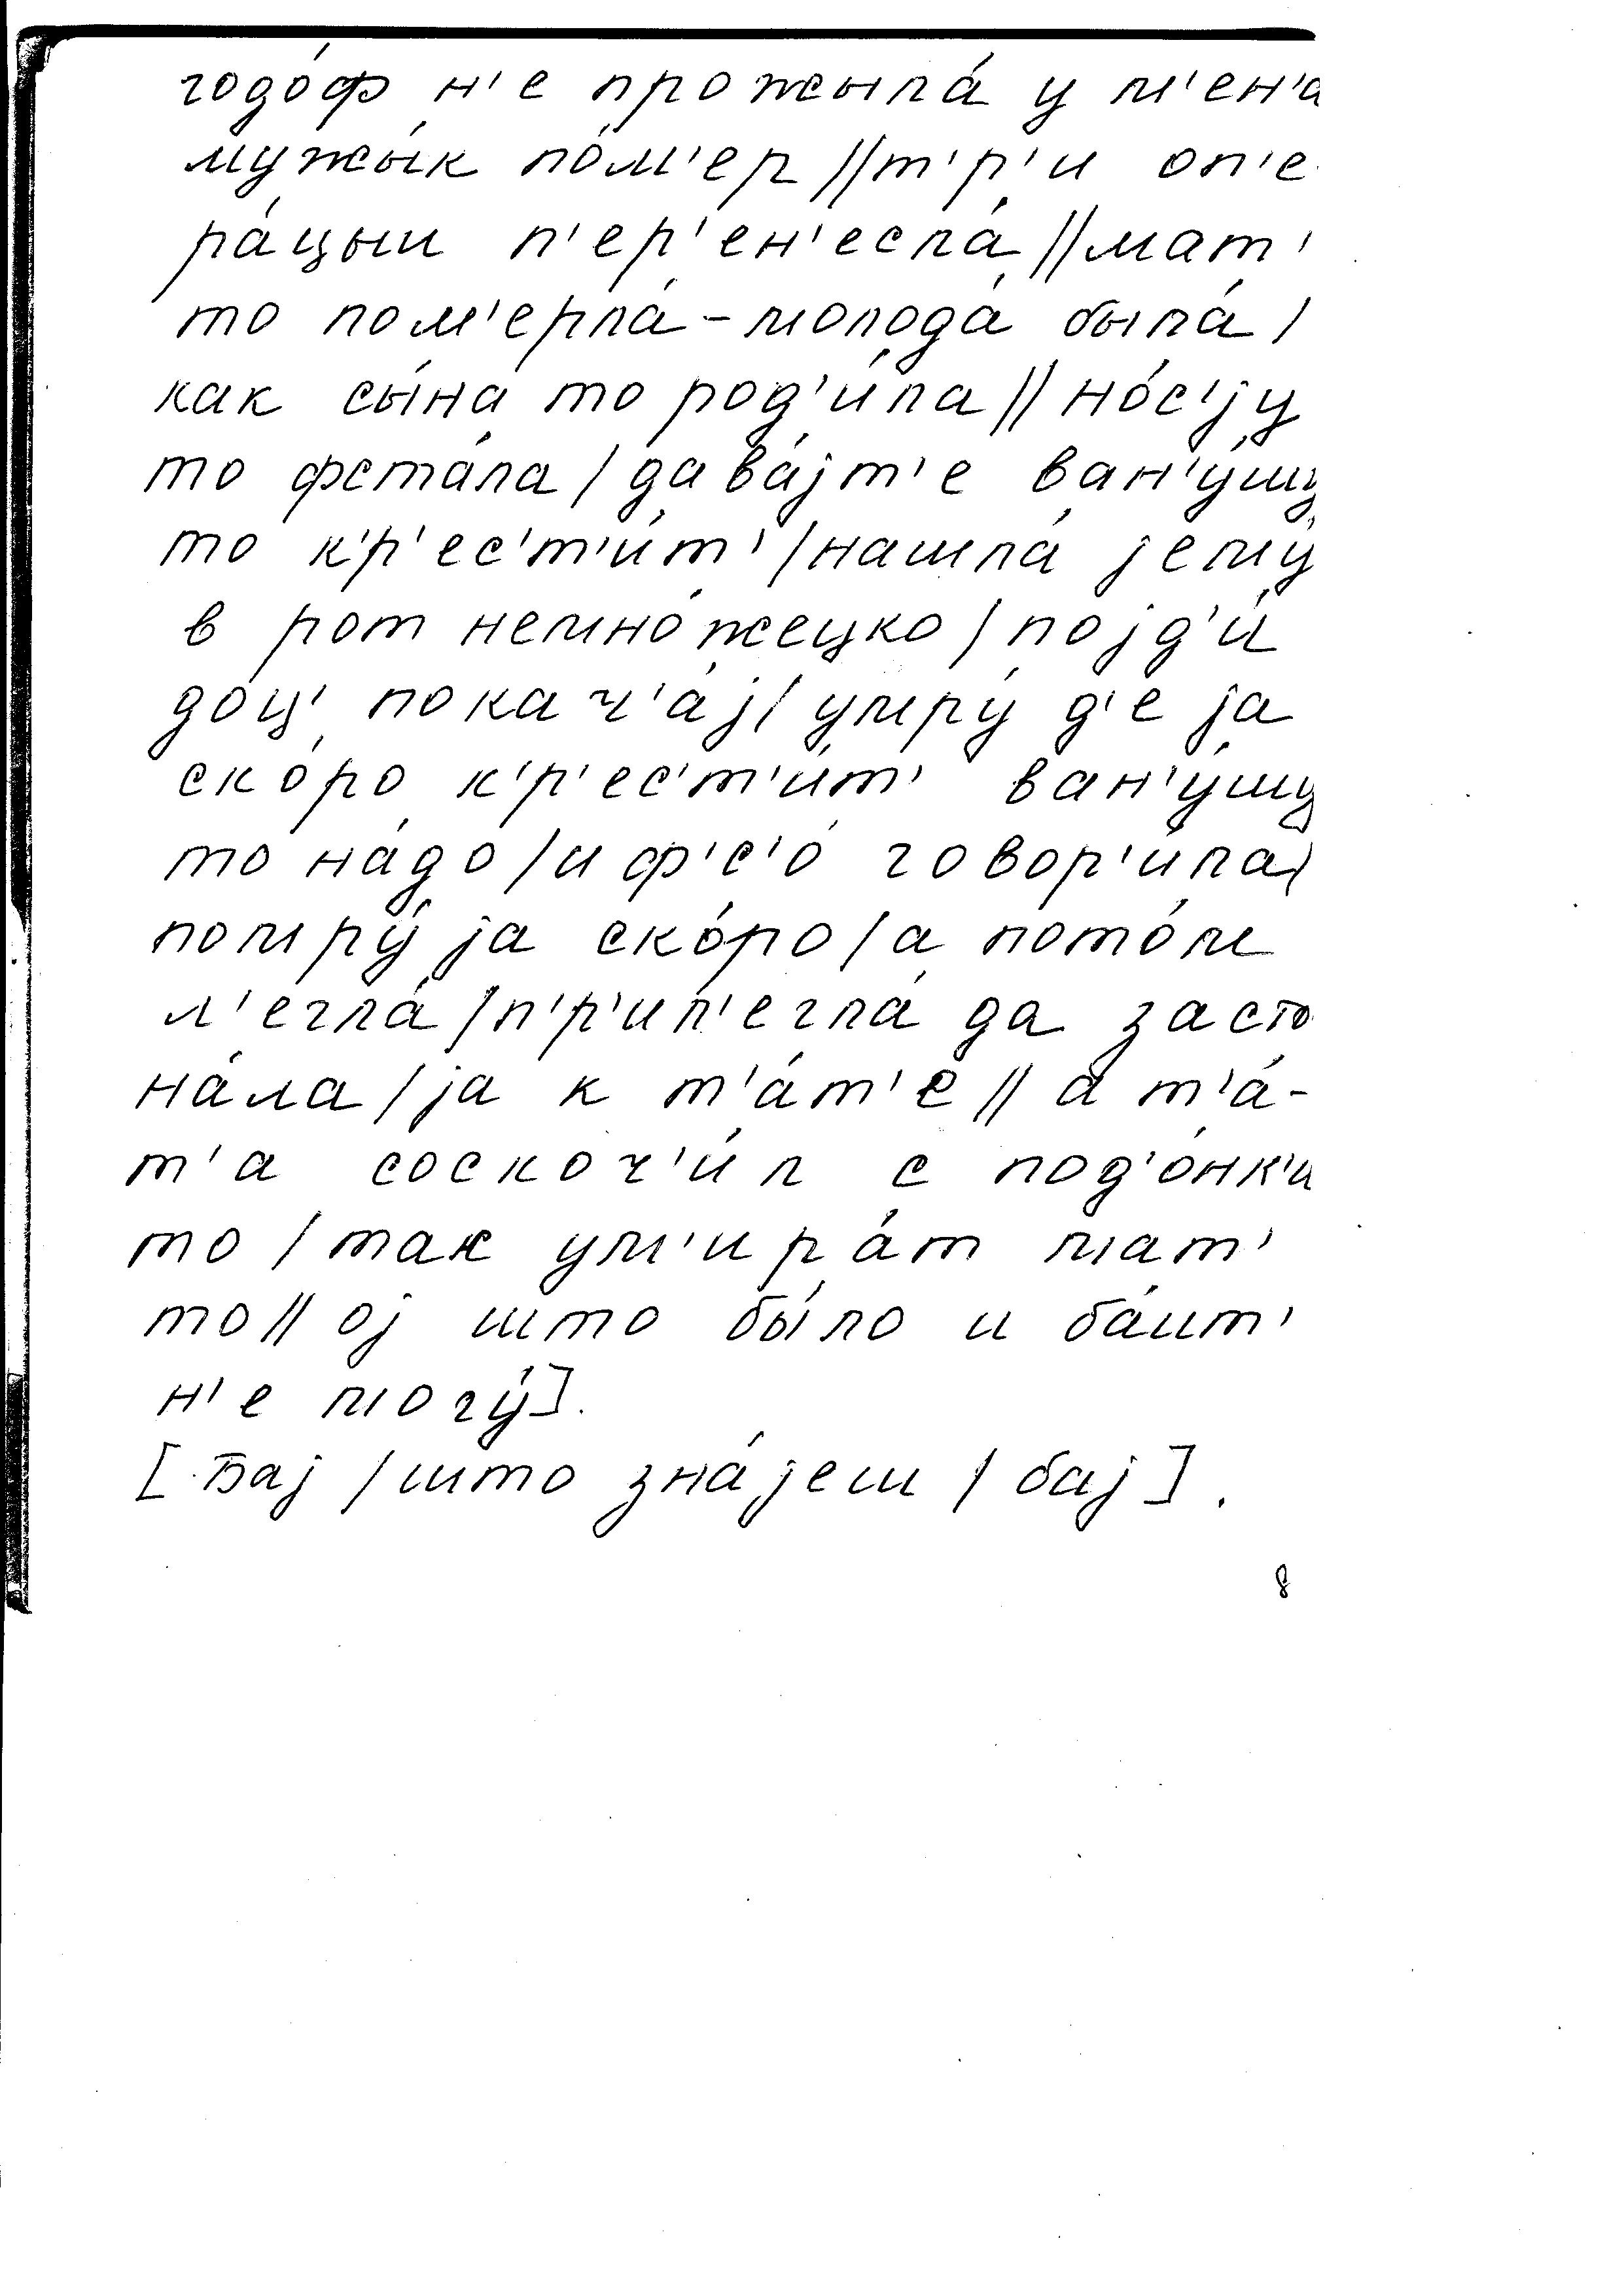 годо́ф н'е прожыла́ у м'ен'а
мужы́к по́м'ер // т'р'и оп'е
ра́цыи п'ер'ен'есла́ // мат'
то пом'ерла́ - молода́ была́ /
как сы́на то род'и́ла // но́с'jу
то фста́ла / дава́jт'е ван'у́шу
то к'р'ес'т'и́т' / нашла́ jему́
в рот немно́жецко / поjд'и́
доц' покач'а́j / умру́ д'е jа
ско́ро к'р'ес'т'и́т' ван'у́шу
то на́до / и ф'с'о́ говор'и́ла /
помру́ jа ско́ро / а пото́м
л'егла́ / п'р'ил'егла́ да засто
на́ла / jа к т'а́т'е // а т'а́-
т'а соскоч'и́л с под'о́нк'и
то / так ум'ира́т мат'
то // оj што бы́ло и ба́ит'
н'е могу́].
[Баj / што зна́jеш / баj].
8